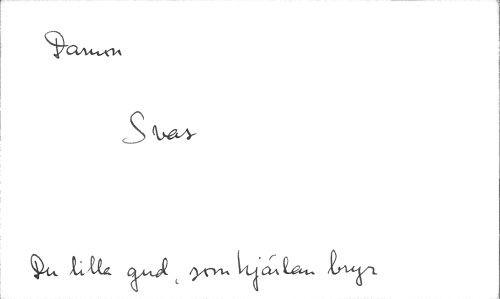 Damon
Svar
Du lilla gud, som hjärtan bryr